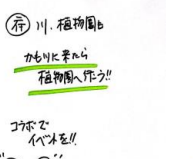 川、植物園も
かもりに来たら
植物園へ行こう!!
コラボで
イベントを!!